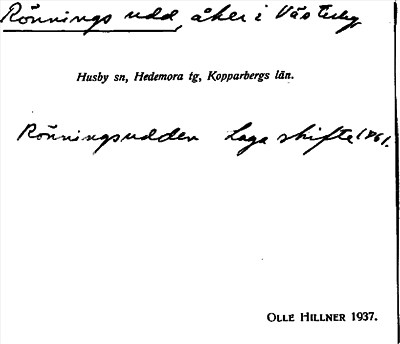 Rönnings udd, åker i Västerby
Husby sn, Hedemora tg, Kopparbergs län.
Rönningsudden Laga skifte 1861.
OLLE HILLNER 1937.